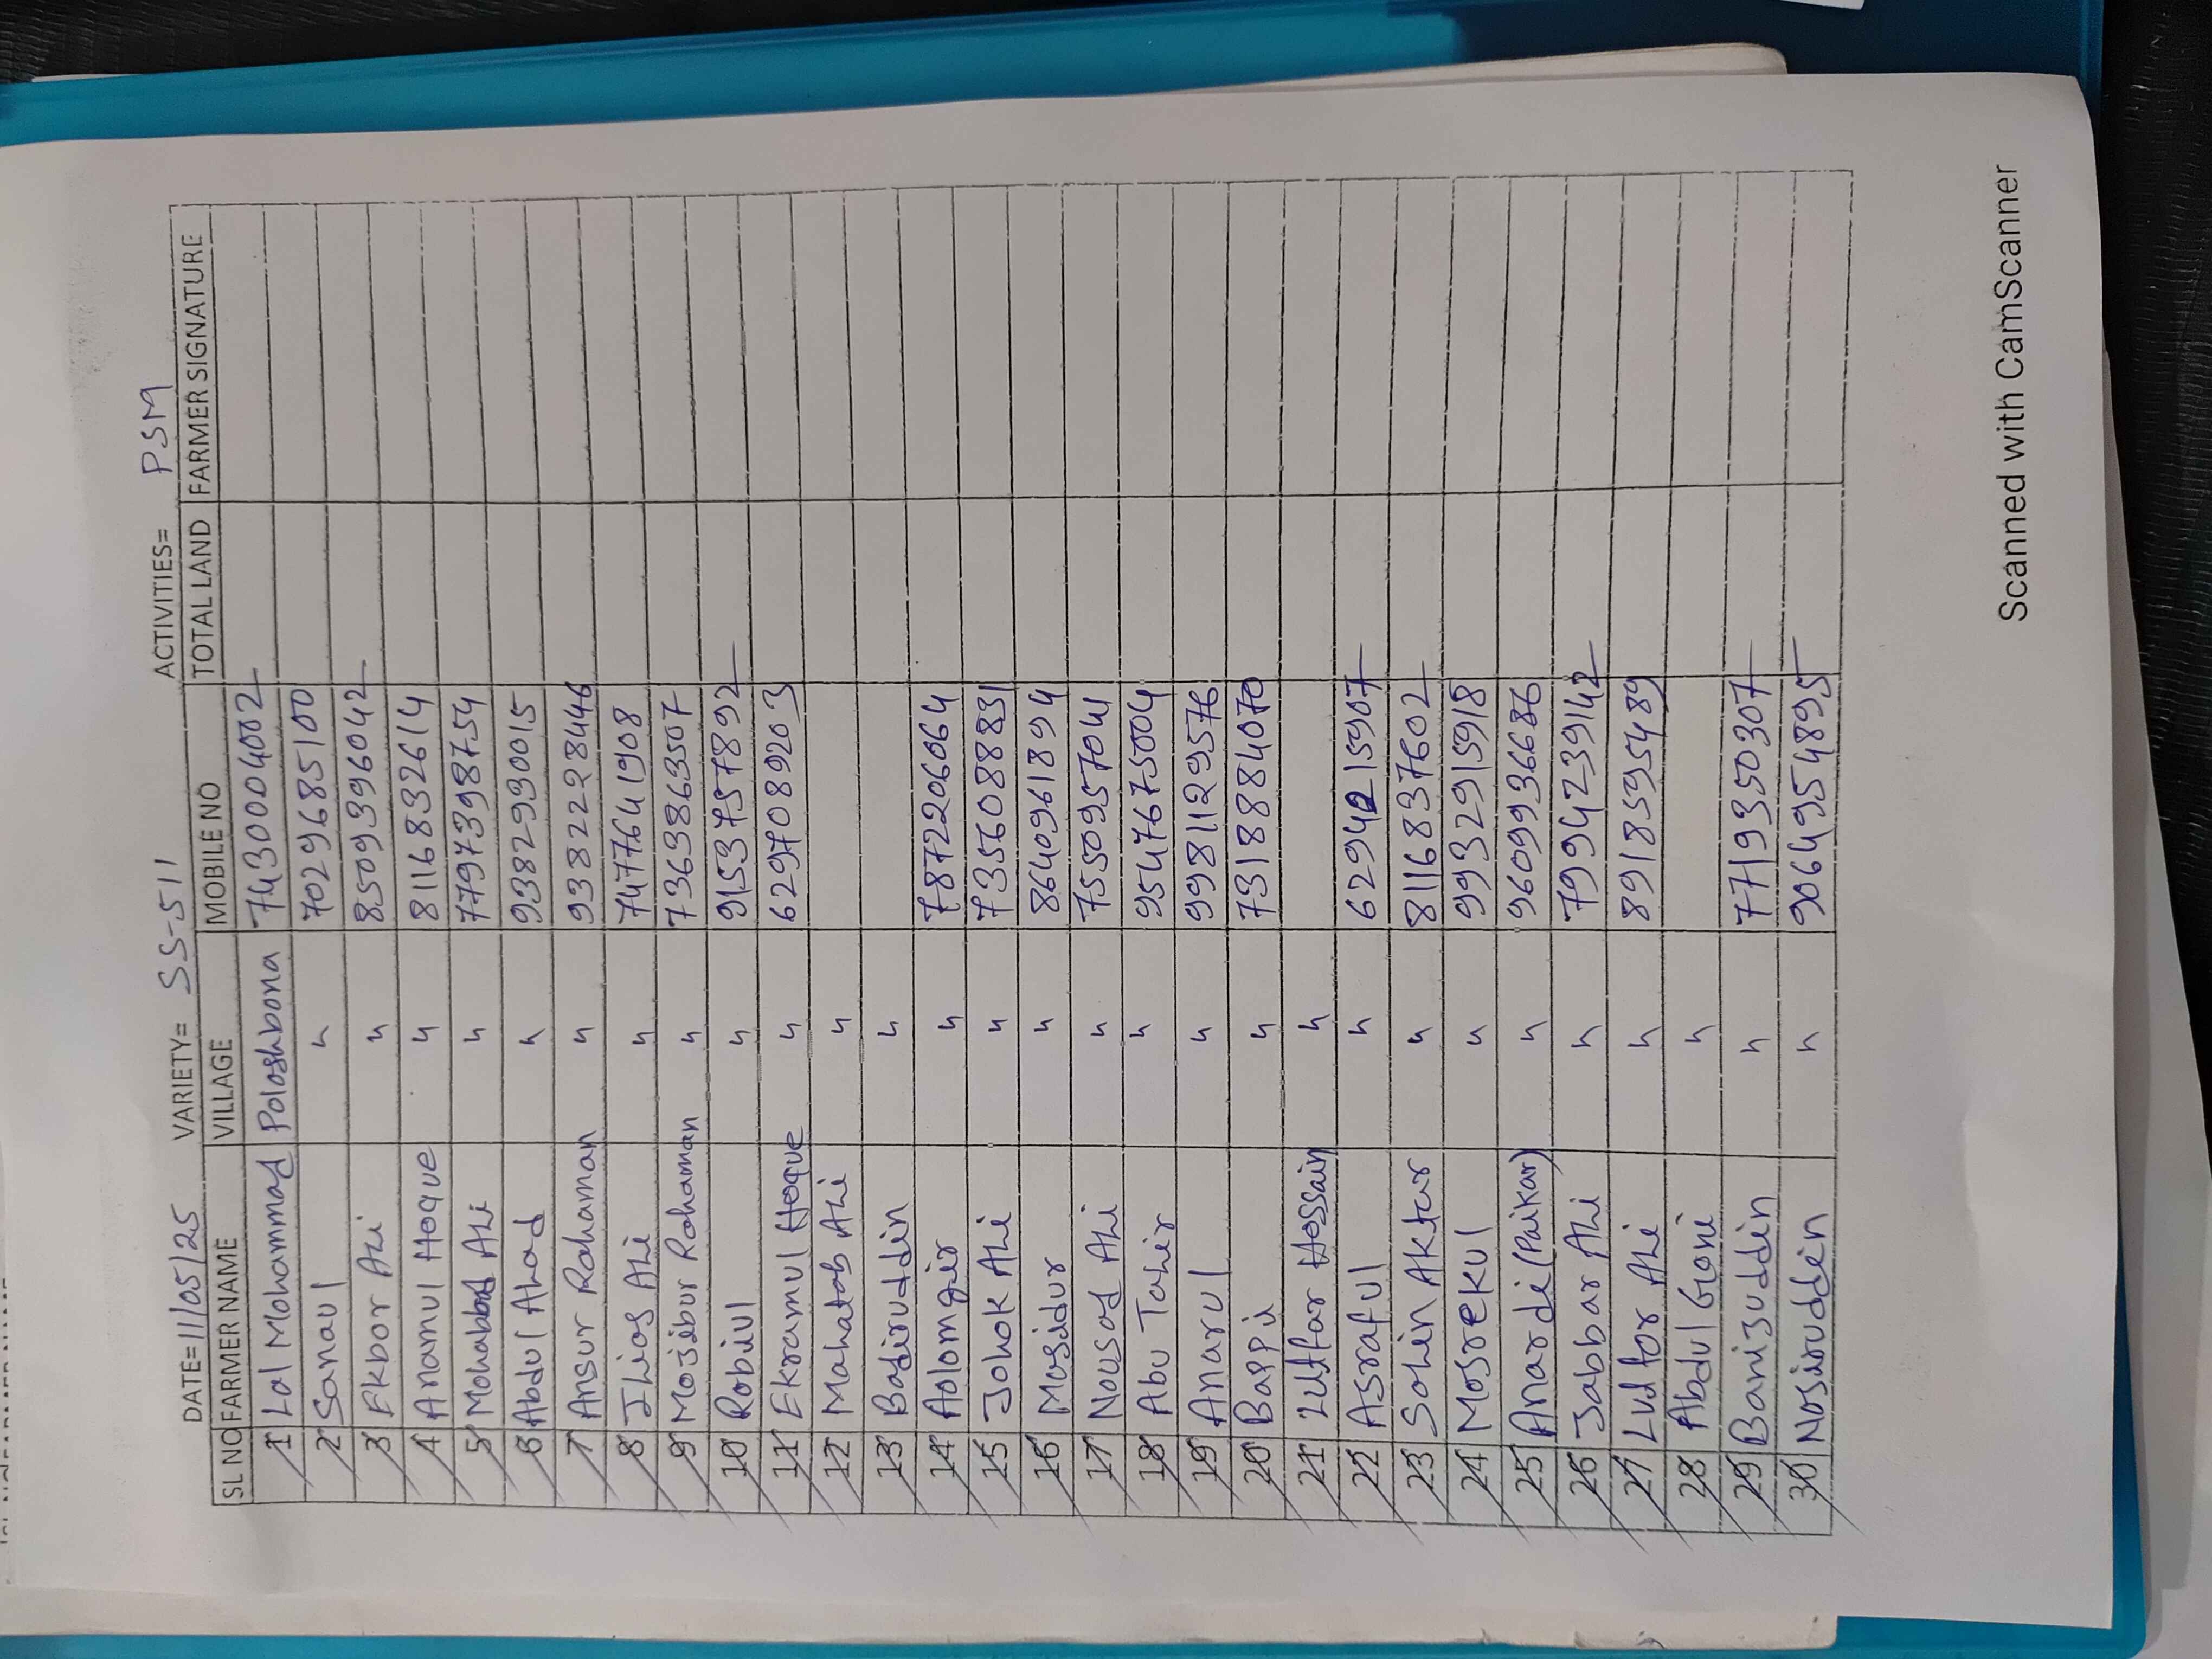 DATE= 11/05/25 VARIETY= SS-511 ACTIVITIES= PSM
SL NO FARMER NAME VILLAGE MOBILE NO TOTAL LAND FARMER SIGNATURE
1 Lal Mohammad Poloshbona 7430004002
2 Sanaul " 7029685100
3 Ekbor Ali " 8509396042
4 Anamul Hoque " 8116832614
5 Mohabbat Ali " 7797398754
6 Abdul Ahad " 9382930015
7 Ansur Rahaman " 9382228446
8 Ilias Ali " 7477641908
9 Mojibur Rahaman " 7363863507
10 Robiul " 9153757892
11 Ekramul Hoque " 6297089203
12 Mahatab Ali "
13 Badiruddin "
14 Aolomgir " 7872206064
15 Johok Ali " 7356088831
16 Musidur " 8640961894
17 Nousad Ali " 7550957041
18 Abu Tahir " 9547675004
19 Anarul " 9981129576
20 Bappi " 7318884070
21 Zulfar Hossain "
22 Asraful " 6294215907
23 Sohin Aktar " 8116837602
24 Mosrekul " 9932915918
25 Anardi (Paikar) " 9609936686
26 Jabbar Ali " 7994239142
27 Lutfor Ali " 8918595489
28 Abdul Goni "
29 Banijuddin " 7719350307
30 Nosiruddin " 9064954895
Scanned with CamScanner